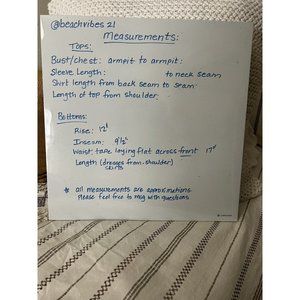 @beachvibes21
Measurements:
Tops:
Bust/chest: armpit to armpit:
Sleeve Length: to neck seam
Shirt length from back seam to seam:
Length of top from shoulder:
Bottoms:
Rise: 12"
Inseam: 9 1/2"
Waist: tape laying flat across front 17"
Length (dresses from shoulder)
skirts
* all measurements are approximations
Please feel free to msg with questions